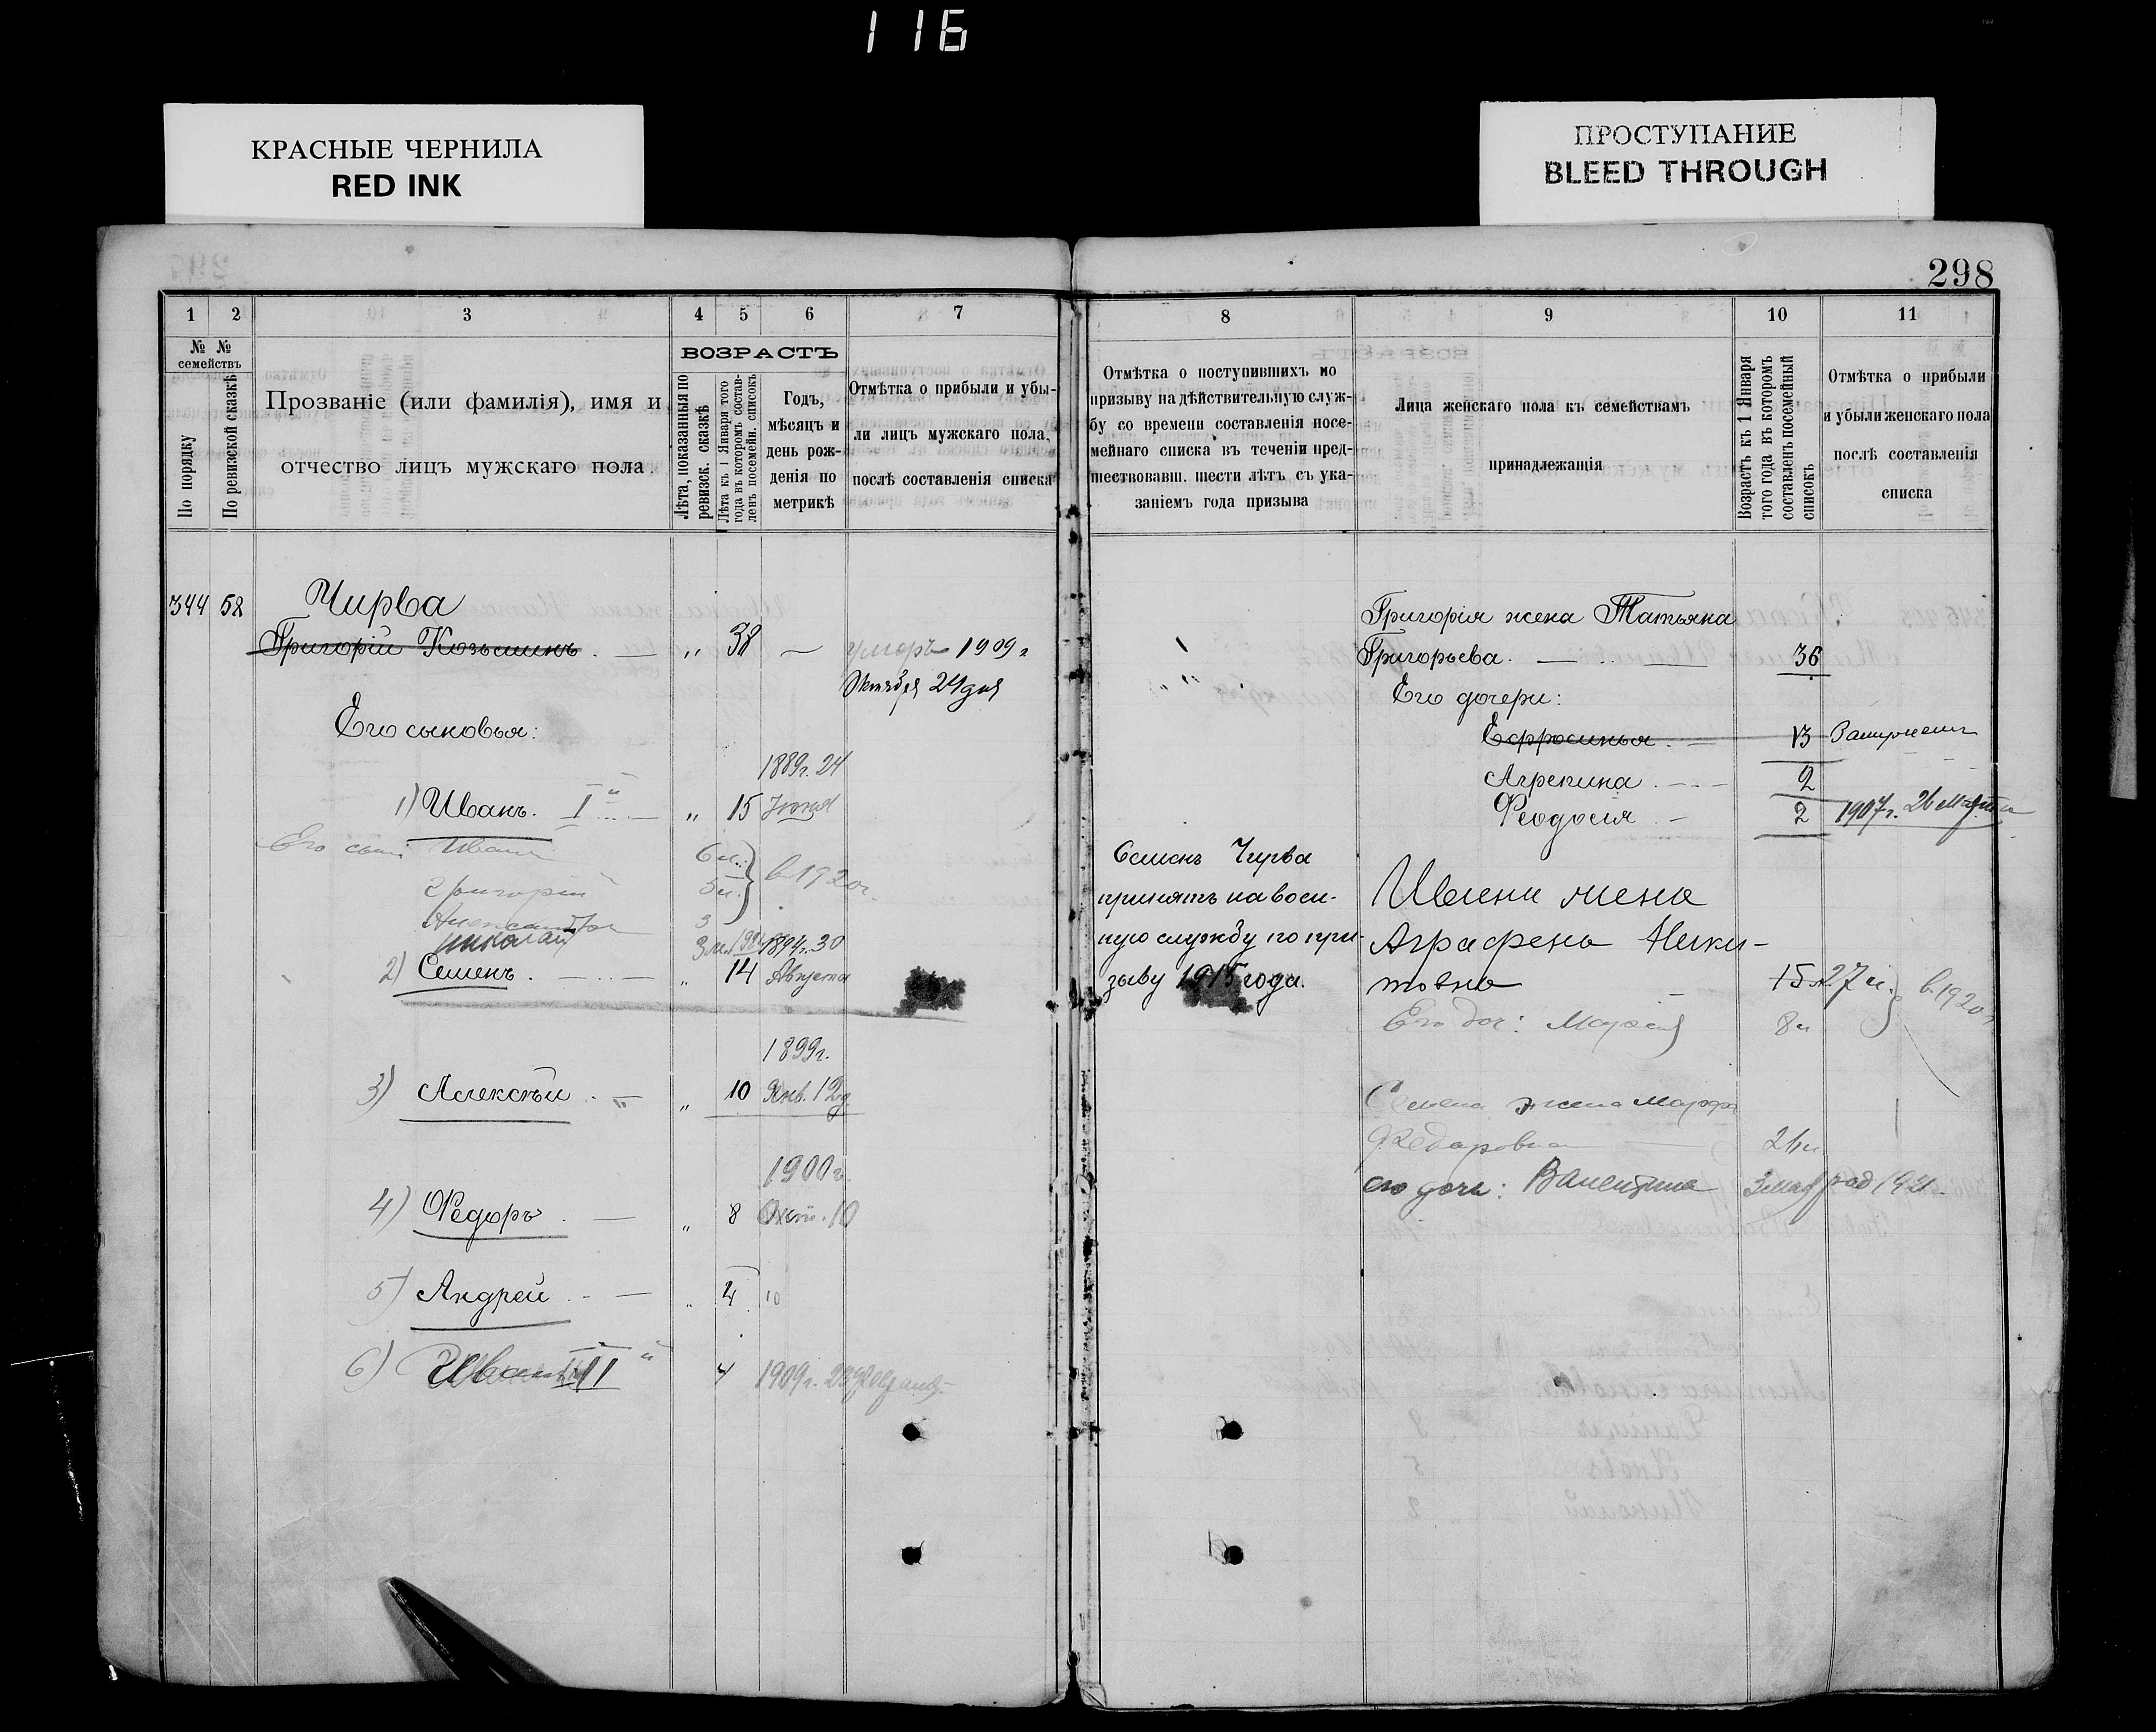 116
КРАСНЫЕ ЧЕРНИЛА
RED INK
ПРОСТУПАНИЕ
BLEED THROUGH
298
1 2 3 4 5 6 7
№ № семействъ
По порядку
По ревизской сказкѣ
Прозваніе (или фамилія), имя и
отчество лицъ мужскаго пола.
ВОЗРАСТЪ
Лѣта, показанныя по
ревизск. сказкѣ
Лѣта къ 1 Января того
года въ которомъ состав-
ленъ посемейн. списокъ
Годъ,
мѣсяцъ и
день рож-
денія по
метрикѣ
Отмѣтка о прибыли и убы-
ли лицъ мужскаго пола,
послѣ составленія списка
344 58 Чирва
Григорій Козьминъ . — „ 38 — умеръ 1909 г
Октября 24 дня
Его сыновья:
1889 г. 24
1) Иванъ. I й — „ 15 Іюня
Его сын Иван 6 л.
Григорий 5 л. } в 1920 г.
Александр 3
Николай 3 м. 1921 1894 г. 30
2) Семенъ . — „ 14 Августа
1899 г.
3) Алексѣй . — „ 10 Янв. 12 д.
1900 г.
4) Федоръ . — „ 8 Окт. 10
5) Андрей . — „ 4 10
6) Иван II й 4 1909 г.
8 9 10 11
Отмѣтка о поступившихъ по
призыву на дѣйствительную служ-
бу со времени составленія посе-
мейнаго списка въ теченіи пред-
шествовавш. шести лѣтъ съ ука-
заніемъ года призыва
Лица женскаго пола къ семействамъ
принадлежащія
Возрастъ къ 1 Января
того года въ которомъ
составленъ посемейный
списокъ
Отмѣтка о прибыли
и убыли женскаго пола
послѣ составленія
списка
Григорія жена Татьяна
Григорьева. — 36
Его дочери:
Ефросинья . — 13 Замужемъ
Агрепина . — 2
Феодосія . — 2 1907 г. 26
Семенъ Чирва
принятъ на воен-
ную службу по при-
зыву 1915 года.
Ивана жена
Аграфена Ники-
товна 15 27 л. } в 1920 г
Его доч: Мария 8 л
Семена жена Марфа
Федоровна
его дочь: Валентина 3 1921